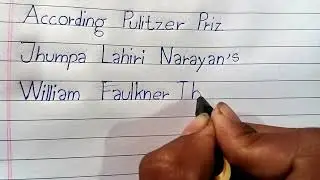 According Pulitzer Priz
Jhumpa Lahiri Narayan's
William Faulkner Th